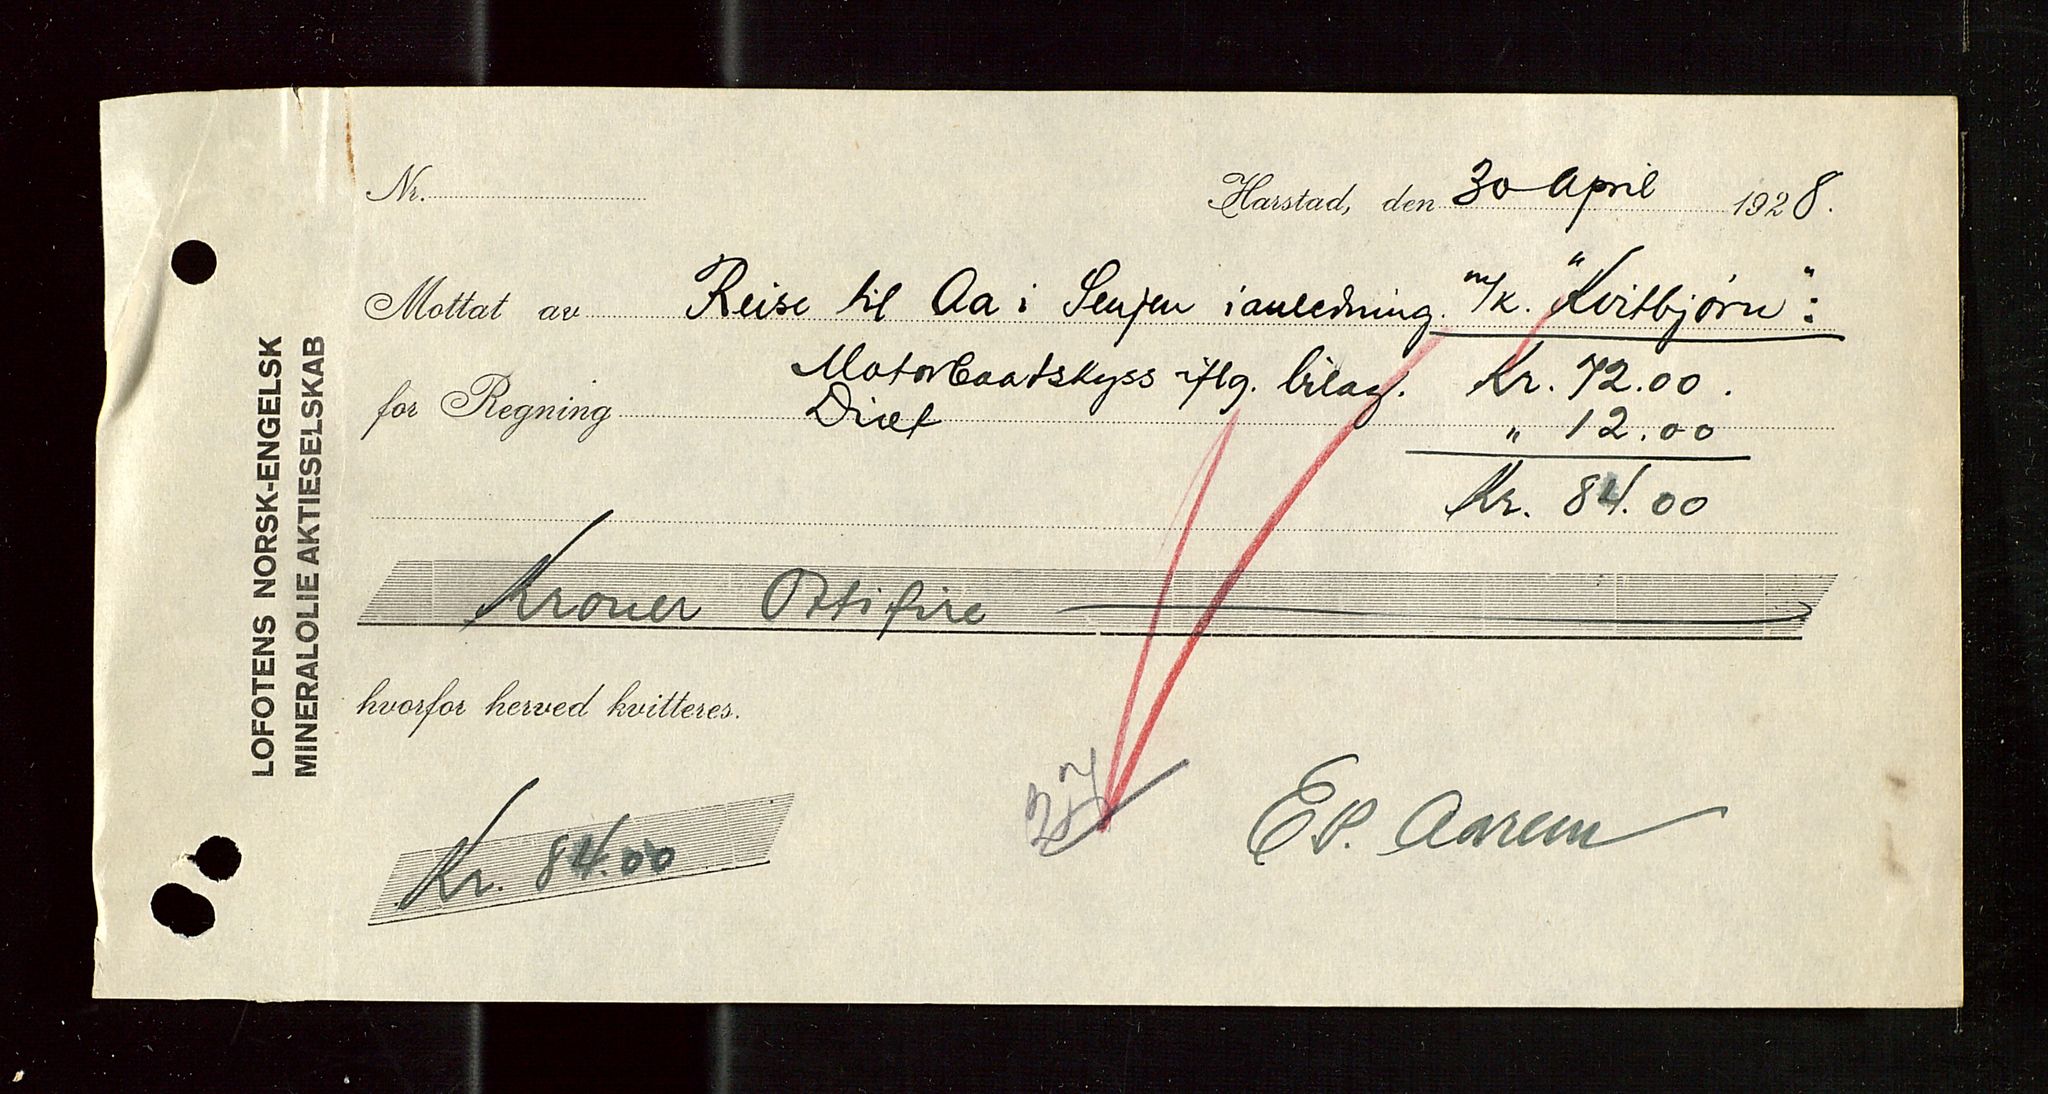 LOFOTENS NORSK-ENGELSK
MINERALOLIE AKTIESELSKAB
Nr.
Harstad, den 30 April 1928.
Mottat av Reise til Aa i Senjen i anledning m/k. "Kvitbjørn":
for Regning Motorbaatskyss iflg. bilag. Kr. 72.00.
Diæt " 12.00
Kr. 84.00
Kroner Ottifire
hvorfor herved kvitteres.
27
Kr. 84.00